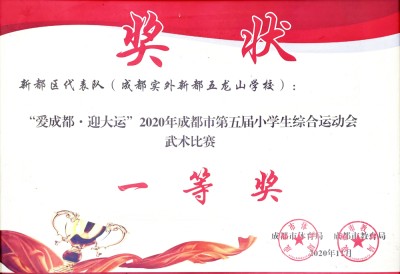 奖状
新都区代表队（成都实外新都五龙山学校）：
“爱成都·迎大运”2020年成都市第五届小学生综合运动会
武术比赛
一等奖
成都市体育局 成都市教育局
2020年11月